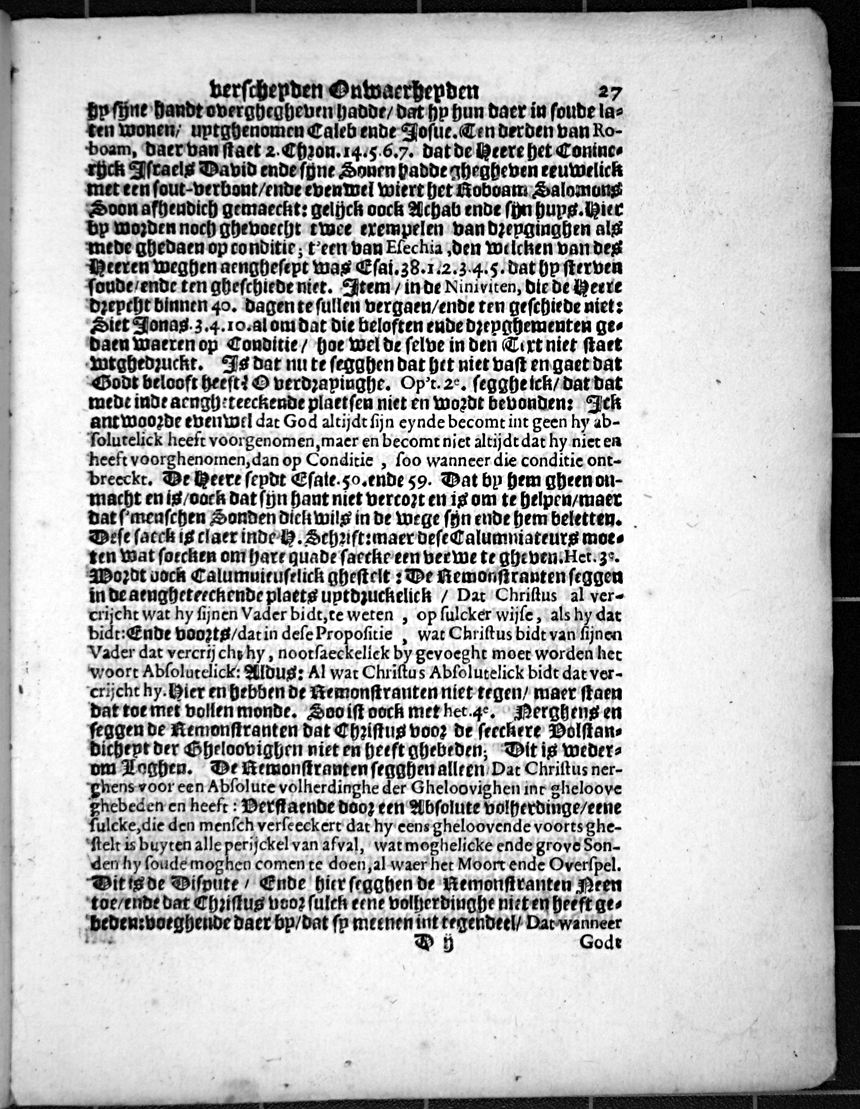 verscheyden Onwaerheyden 27
hy sijne handt overghegheven hadde/ dat hy hun daer in soude la-
ten wonen/ uytghenomen Caleb ende Josue. Ten derden van Ro-
boam, daer van staet 2. Chron. 14. 5. 6. 7. dat de Heere het Coninc-
rijck Israels David ende sijne Sonen hadde ghegheven eeuwelick
met een sout-verbont/ ende evenwel wiert het Roboam Salomons
Soon afhendich gemaeckt: gelijck oock Achab ende sijn huys. Hier
by worden noch ghevoecht twee exempelen van dreyginghen als
mede ghedaen op conditie; t'een van Esechia, den welcken van des
Heeren weghen aengheseyt was Esai. 38. 1. 2. 3. 4. 5. dat hy sterven
soude/ ende ten gheschiede niet. Item/ in de Niniviten, die de Heere
dreycht binnen 40. dagen te sullen vergaen/ ende ten geschiede niet:
Siet Jonas. 3. 4. 10. al om dat die beloften ende dreyghementen ge-
daen waeren op Conditie/ hoe wel de selve in den Text niet staet
wtghedruckt. Is dat nu te segghen dat het niet vast en gaet dat
Godt belooft heeft? O verdrayinghe. Op't. 2e. segghe ick/ dat dat
mede inde aengheteeckende plaetsen niet en wordt bevonden: Ick
antwoorde evenwel dat God altijdt sijn eynde becomt int geen hy ab-
solutelick heeft voorgenomen, maer en becomt niet altijdt dat hy niet en
heeft voorghenomen, dan op Conditie, soo wanneer die conditie ont-
breeckt. De Heere seydt Esaie. 50. ende 59. Dat by hem gheen on-
macht en is/ oock dat sijn hant niet vercort en is om te helpen/ maer
dat s'menschen Sonden dickwils in de wege sijn ende hem beletten.
Dese saeck is claer inde H. Schrift: maer dese Calumniateurs moe-
ten wat soecken om hare quade saecke een verwe te gheven. Het. 3e.
Wordt oock Calumnieuselick ghestelt: De Remonstranten seggen
in de aengheteeckende plaets uytdruckelick/ Dat Christus al ver-
crijcht wat hy sijnen Vader bidt, te weten, op sulcker wijse, als hy dat
bidt: Ende voorts/ dat in dese Propositie, wat Christus bidt van sijnen
Vader dat vercrijcht hy, nootsaeckelick by gevoeght moet worden het
woort Absolutelick: Aldus: Al wat Christus Absolutelick bidt dat ver-
crijcht hy. Hier en hebben de Remonstranten niet tegen/ maer staen
dat toe met vollen monde. Soo ist oock met het. 4e. Nerghens en
seggen de Remonstranten dat Christus voor de seeckere Volstan-
dicheyt der Gheloovighen niet en heeft ghebeden; Dit is weder-
om Loghen. De Remonstranten segghen alleen Dat Christus ner-
ghens voor een Absolute volherdinghe der Gheloovighen int gheloove
ghebeden en heeft: Verstaende door een Absolute volherdinge/ eene
sulcke, die den mensch verseeckert dat hy eens gheloovende voorts ghe-
stelt is buyten alle perijckel van afval, wat moghelicke ende grove Son-
den hy soude moghen comen te doen, al waer het Moort ende Overspel.
Dit is de Dispute/ Ende hier segghen de Remonstranten Neen
toe/ ende dat Christus voor sulck eene volherdinghe niet en heeft ge-
beden: voeghende daer by/ dat sy meenen int tegendeel/ Dat wanneer
D ij Godt